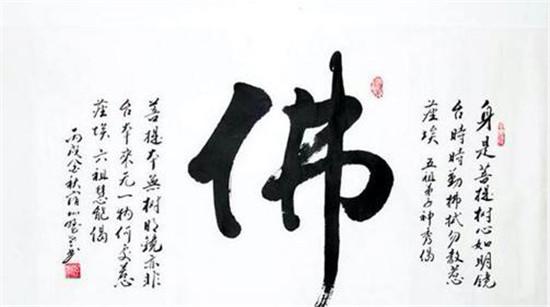 身是菩提樹心如明镜
台時時勤拂拭勿教惹
塵埃 五祖弟子神秀偈
佛
菩提本無樹明镜亦非
台本来无一物何处惹
塵埃 六祖慧能偈
丙戌金秋